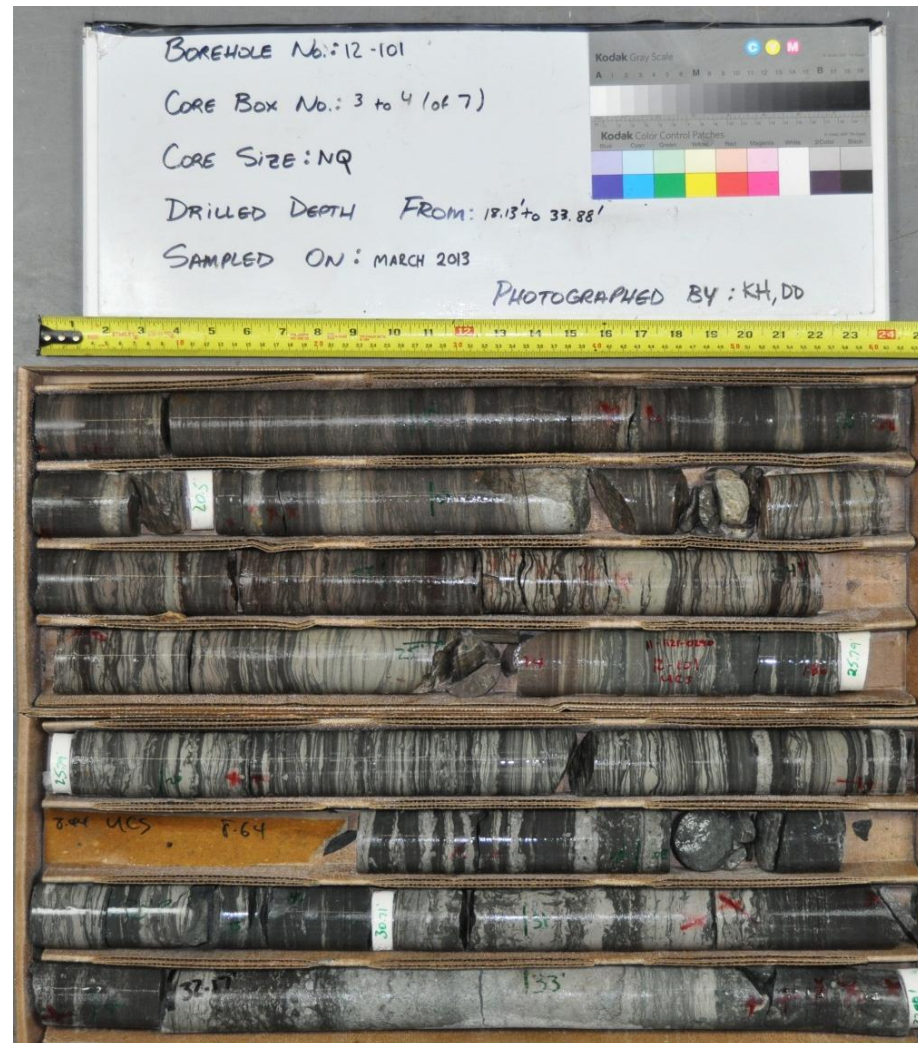 BOREHOLE No.: 12-101
CORE BOX No.: 3 to 4 (of 7)
CORE SIZE: NQ
DRILLED DEPTH FROM: 18.13' to 33.88'
SAMPLED ON: MARCH 2013
PHOTOGRAPHED BY: KH, DD
Kodak Gray Scale
C Y M
A 1 2 3 4 5 6 M 8 9 10 11 12 13 14 15 B 17 18 19
Kodak Color Control Patches
Blue Cyan Green Yellow Red Magenta White 3/Color Black
1 2 3 4 5 6 7 8 9 10 11 12 13 14 15 16 17 18 19 20 21 22 23 24
20.5
UCS
25.79
25.79
UCS 8.64
30.71
31
32.17
33'